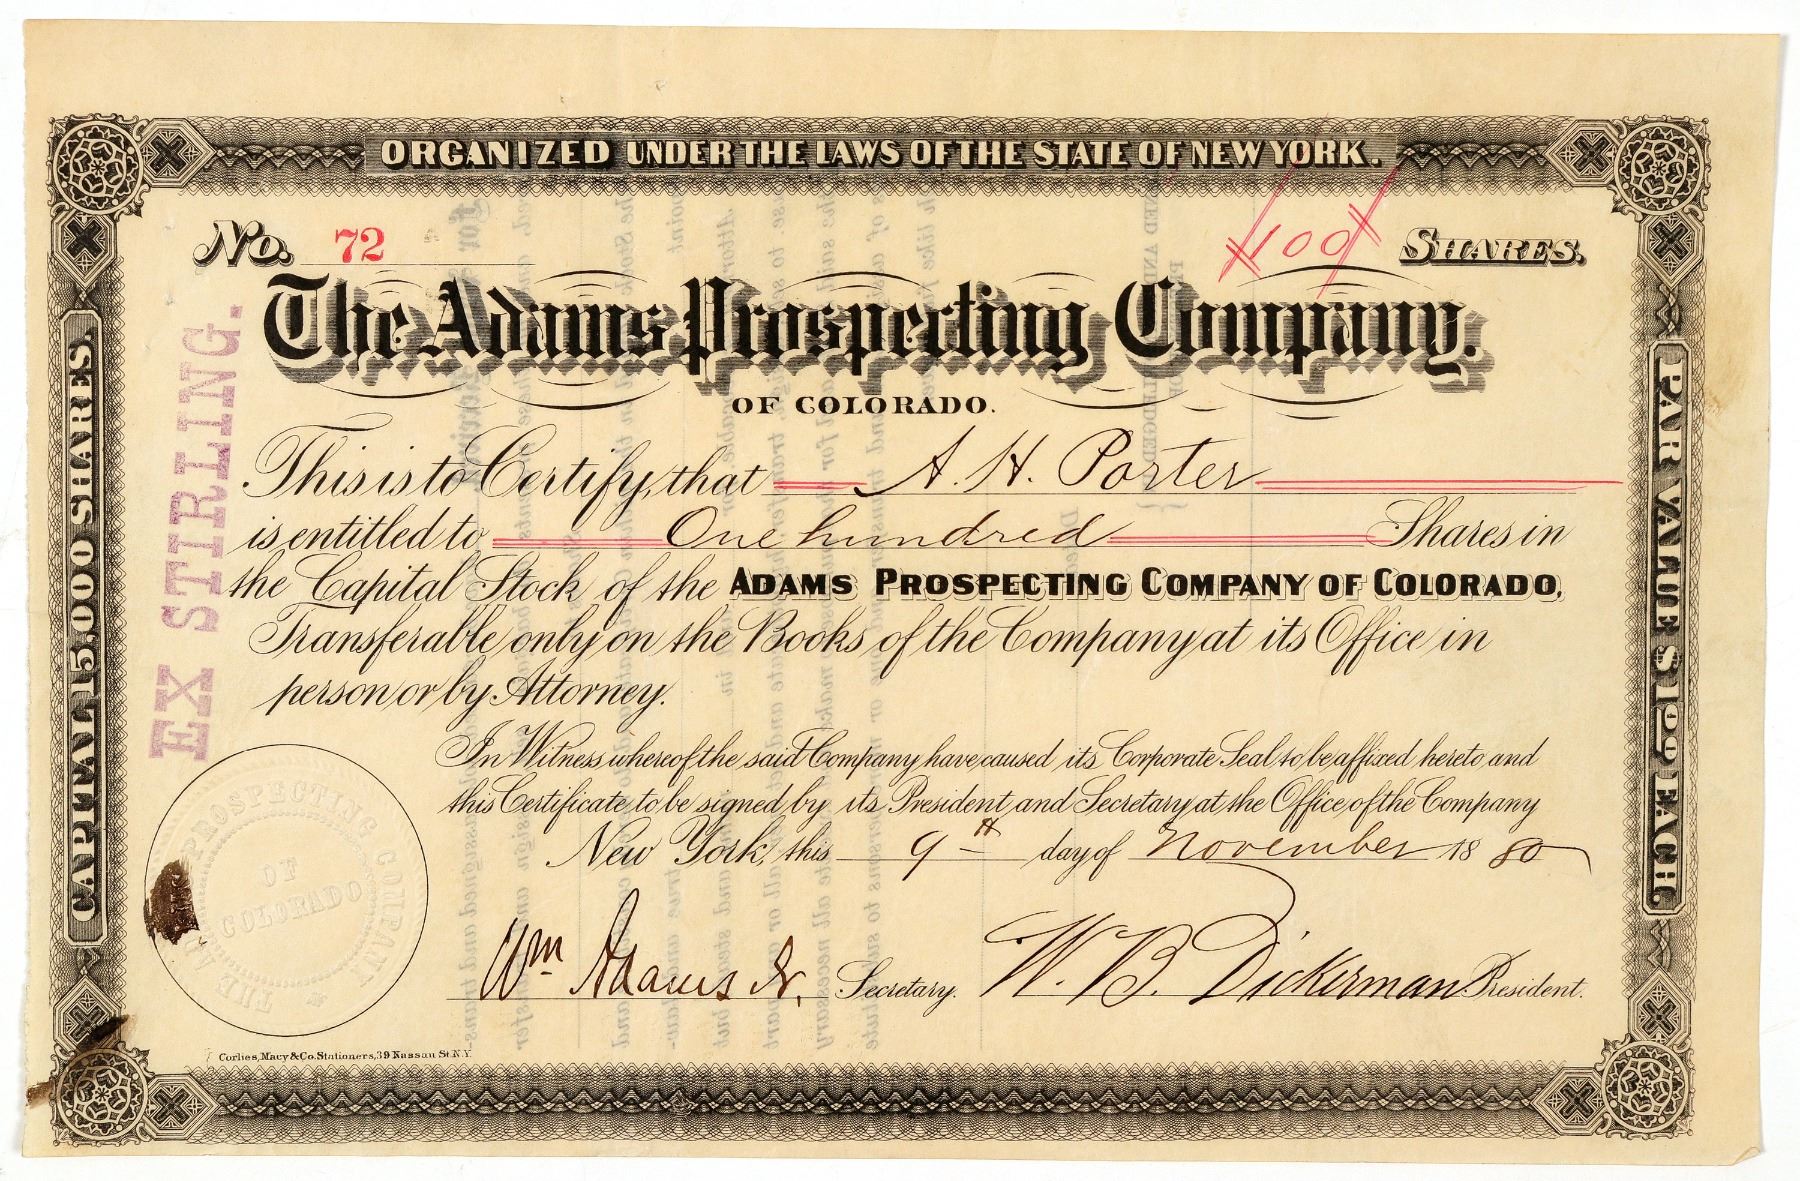 ORGANIZED UNDER THE LAWS OF THE STATE OF NEW YORK.
No. 72
100 SHARES.
The Adams Prospecting Company.
OF COLORADO.
This is to Certify, that A. H. Porter
is entitled to One hundred Shares in
the Capital Stock of the ADAMS PROSPECTING COMPANY OF COLORADO,
Transferable only on the Books of the Company at its Office in
person or by Attorney.
In Witness whereof the said Company have caused its Corporate Seal to be affixed hereto and
this Certificate to be signed by its President and Secretary at the Office of the Company
New York, this 9th day of November 1880
Wm Adams Jr. Secretary. W. B. Dickerman President.
Corlies, Macy & Co. Stationers, 39 Nassau St. N.Y.
CAPITAL 15,000 SHARES.
EX STIRLING.
PAR VALUE $100 EACH.
THE ADAMS PROSPECTING COMPANY
OF
COLORADO